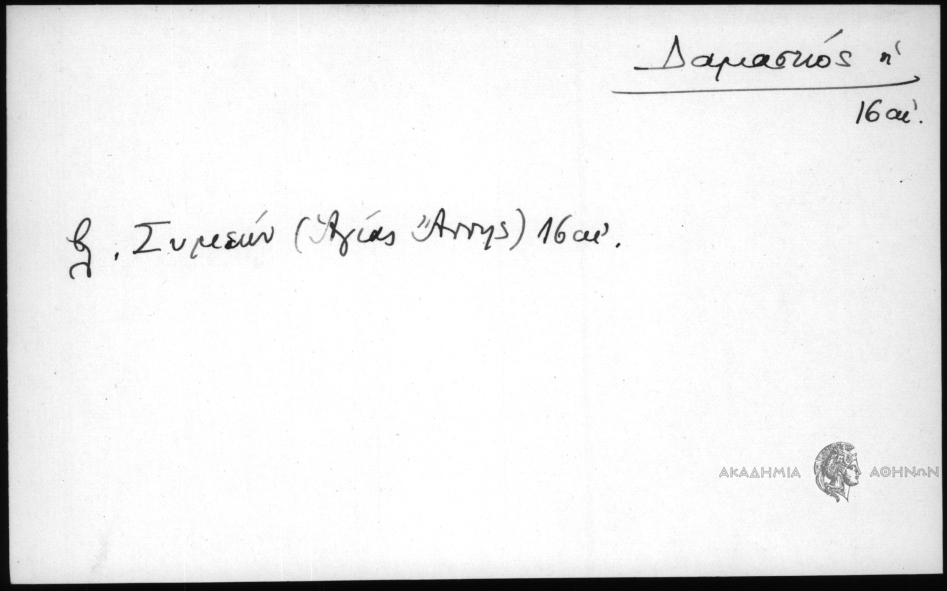 Δαμασκιός η'
16 αι'.
ζ. Συμεών (Ἁγίας Ἄννης) 16 αι'.
ΑΚΑΔΗΜΙΑ ΑΘΗΝΩΝ